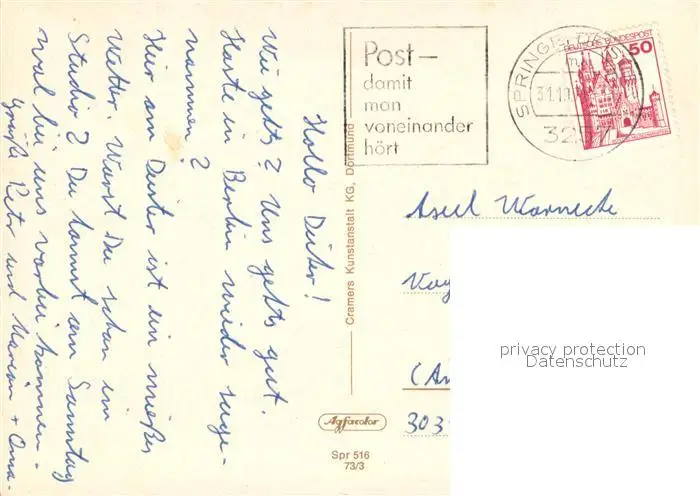 Hallo Dieter!
Wie gehts? Uns gehts gut.
Haste in Berlin wieder zuge-
nommen?
Hier am Deister ist ein mieses
Wetter. Warst Du schon im
Studio? Du kannst am Sonntag
mal bei uns vorbei kommen.
Grüße Peter und Marion + Oma.
Post –
damit
man
voneinander
hört
SPRINGE, DE
31.10.
3257
DEUTSCHE BUNDESPOST
50
Cramers Kunstanstalt KG, Dortmund
Axel Warnecke
Vog
(Am
303
privacy protection
Datenschutz
Agfacolor
Spr 516
73/3